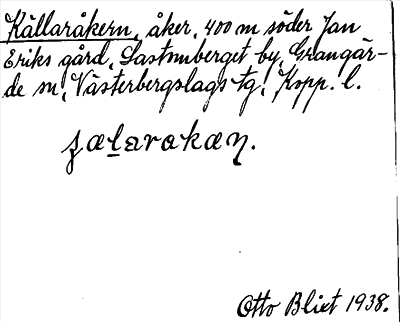 Källaråkern, åker, 400 m söder Jan
Eriks gård, Sastmberget by, Grangär-
de sn, Västerbergslags tg, Kopp. l.
ʒælarokæn.
Otto Blixt 1938.